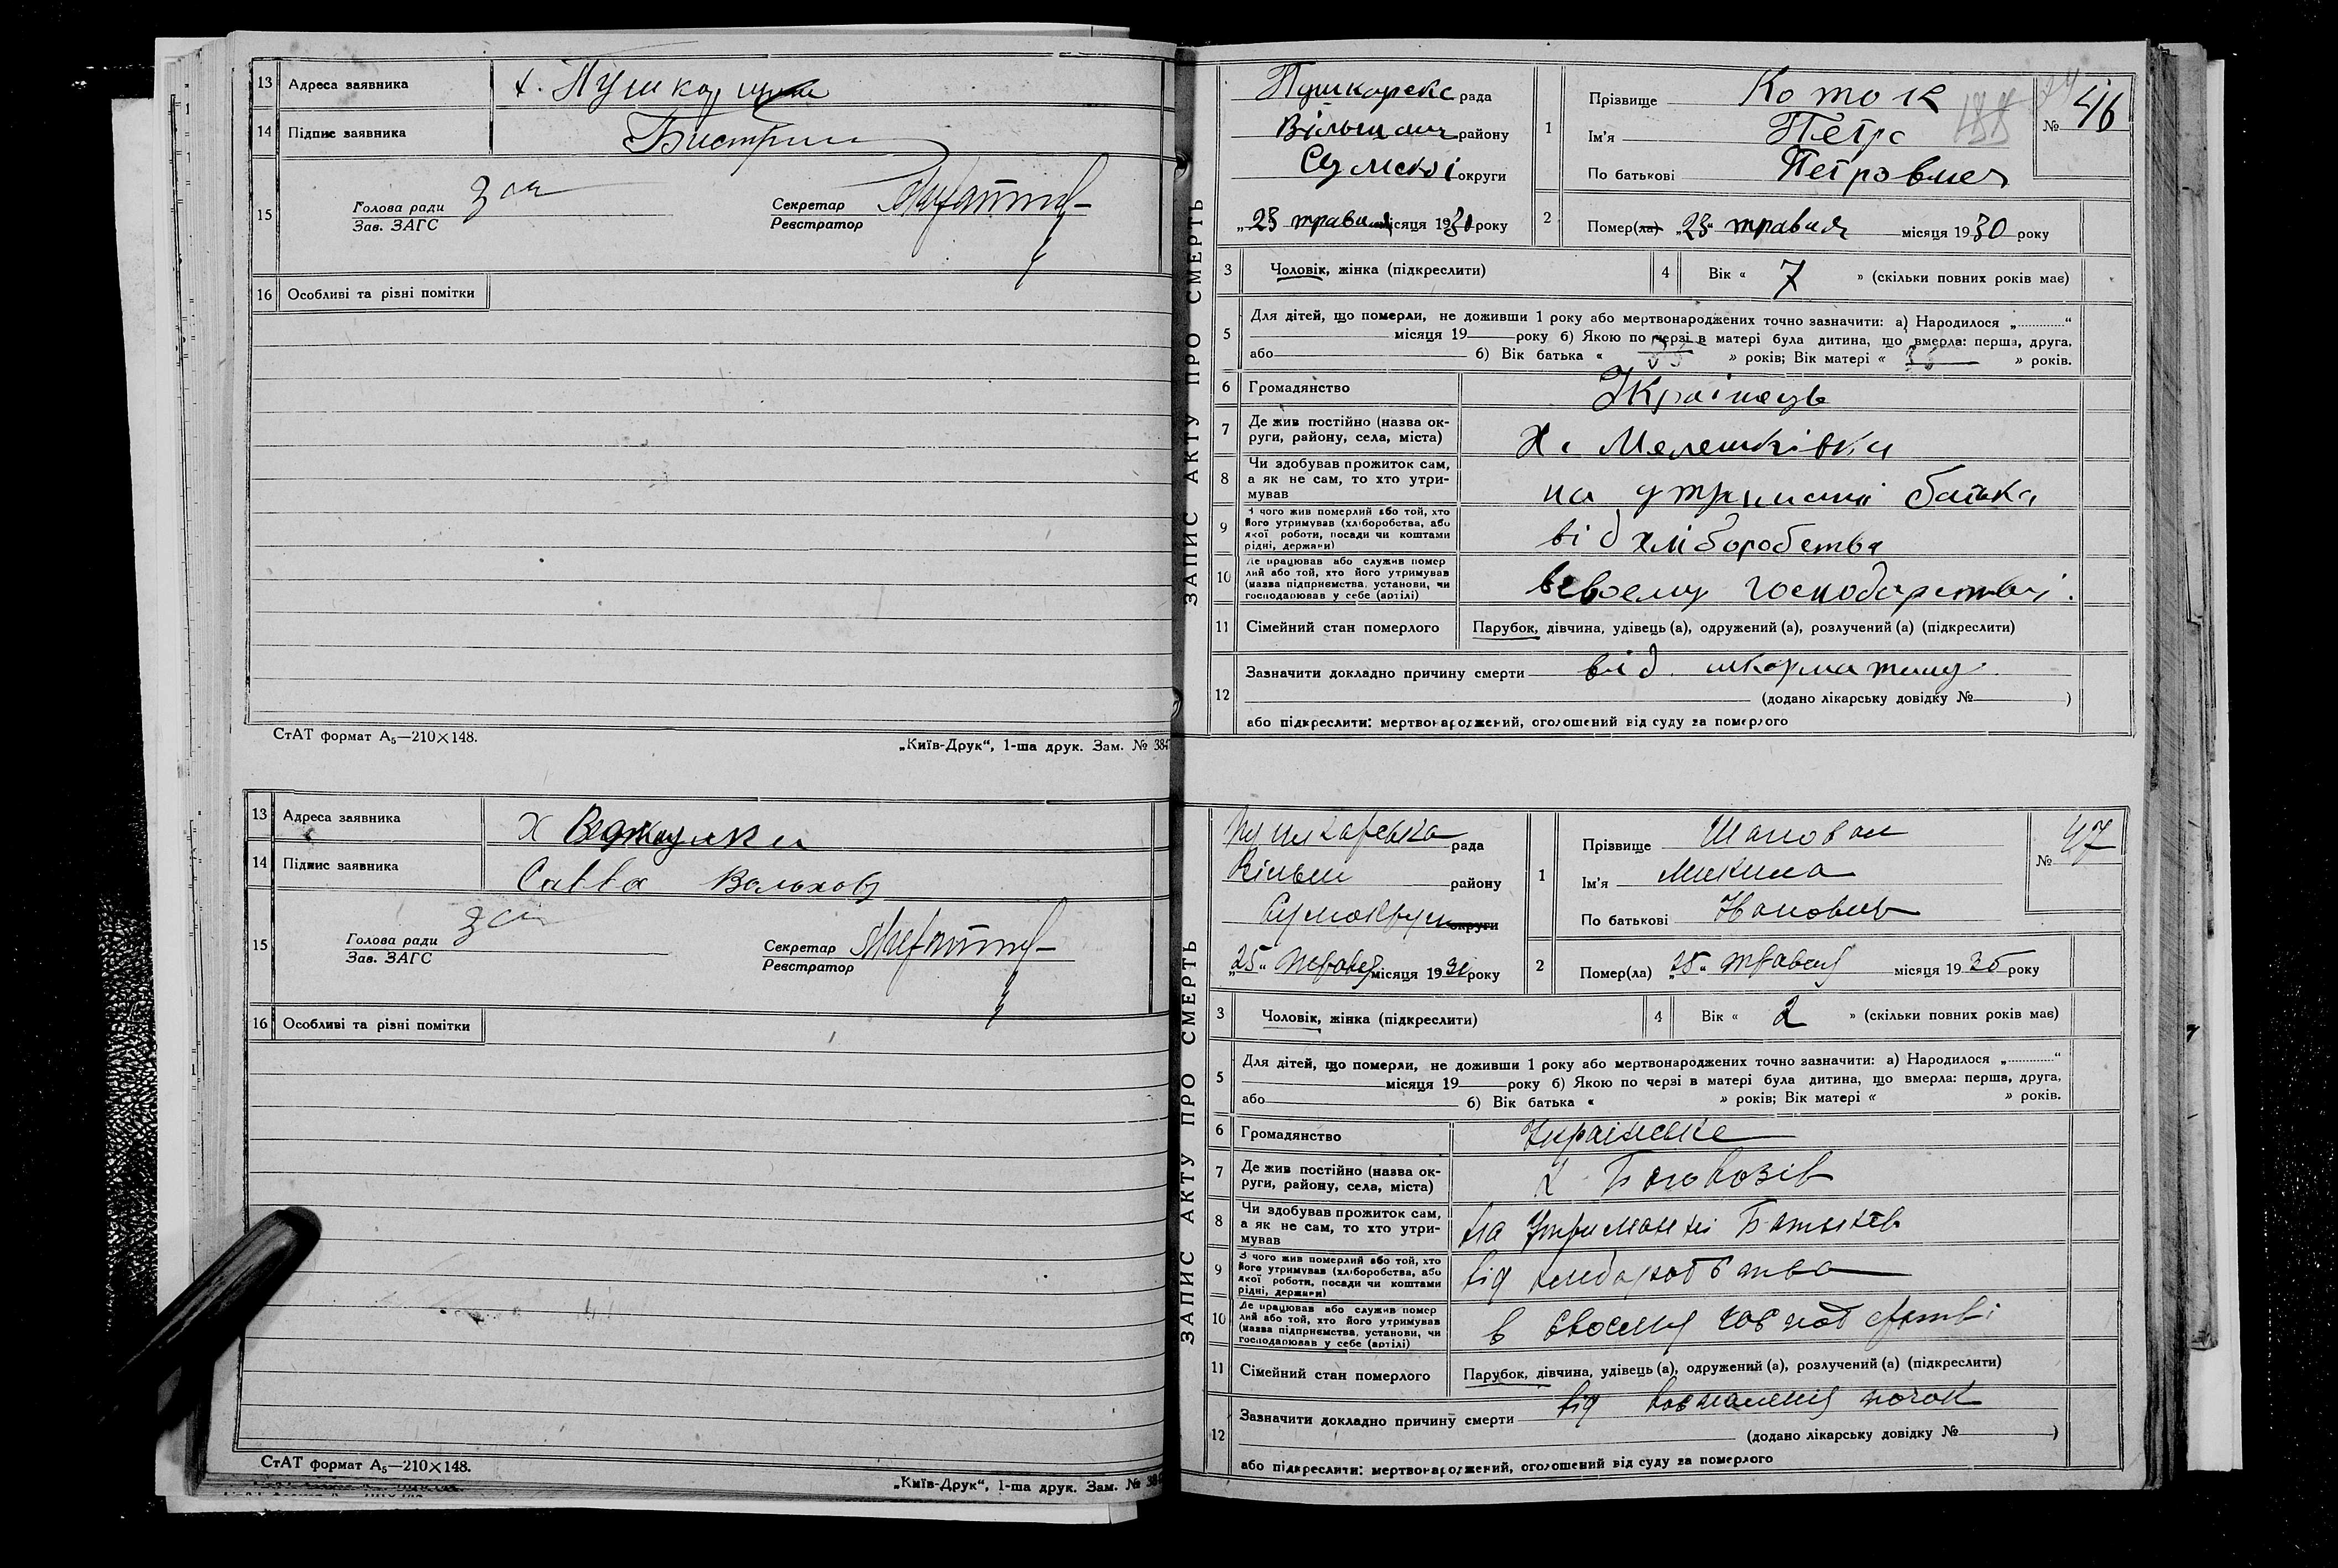 13 Адреса заявника х. Пушкарщина
14 Підпис заявника
15 Голова ради Зав. ЗАГС За Секретар Реєстратор
16 Особливі та різні помітки
СтАТ формат А5—210×148. „Київ-Друк“, 1-ша друк. Зам. № 384
13 Адреса заявника х
14 Підпис заявника Савва
15 Голова ради Зав. ЗАГС За Секретар Реєстратор
16 Особливі та різні помітки
СтАТ формат А5—210×148.
„Київ-Друк“, 1-ша друк. Зам. № 384
ЗАПИС АКТУ ПРО СМЕРТЬ
Пушкарськ рада
Вільшан району
Сумської округи
„23 травня місяця 1930 року
1 Прізвище Коток № 46
Ім'я Петро 188
По батькові Петрович
2 Помер(ла) „23“ травня місяця 1930 року
3 Чоловік, жінка (підкреслити) 4 Вік « 7 » (скільки повних років має)
5 Для дітей, що померли, не доживши 1 року або мертвонароджених точно зазначити: а) Народилося „............“
місяця 19 року б) Якою по черзі в матері була дитина, що вмерла: перша, друга,
або б) Вік батька « » років; Вік матері « 35 » років.
6 Громадянство Українець
7 Де жив постійно (назва округи, району, села, міста) Х. Мелешківка
8 Чи здобував прожиток сам, а як не сам, то хто утримував на утриманні батька
9 З чого жив померлий або той, хто його утримував (хліборобства, або якої роботи, посади чи коштами рідні, держави) від хліборобства
10 Де працював або служив померлий або той, хто його утримував (назва підприємства, установи, чи господарював у себе (артілі) в своєму господарстві.
11 Сімейний стан померлого Парубок, дівчина, удівець (а), одружений (а), розлучений (а) (підкреслити)
12 Зазначити докладно причину смерти від
(додано лікарську довідку № )
або підкреслити: мертвонароджений, оголошений від суду за померлого
ЗАПИС АКТУ ПРО СМЕРТЬ
Пушкарська рада
Вільш району
округи
„25“ травня місяця 1930 року
1 Прізвище Шаповал № 47
Ім'я Микита
По батькові
2 Помер(ла) „25“ травня місяця 1930 року
3 Чоловік, жінка (підкреслити) 4 Вік « 2 » (скільки повних років має)
5 Для дітей, що померли, не доживши 1 року або мертвонароджених точно зазначити: а) Народилося „............“
місяця 19 року б) Якою по черзі в матері була дитина, що вмерла: перша, друга,
або б) Вік батька « » років; Вік матері « » років.
6 Громадянство Українське
7 Де жив постійно (назва округи, району, села, міста) х
8 Чи здобував прожиток сам, а як не сам, то хто утримував На утриманні Батьків
9 З чого жив померлий або той, хто його утримував (хліборобства, або якої роботи, посади чи коштами рідні, держави) від
10 Де працював або служив померлий або той, хто його утримував (назва підприємства, установи, чи господарював у себе (артілі) в своєму
11 Сімейний стан померлого Парубок, дівчина, удівець (а), одружений (а), розлучений (а) (підкреслити)
12 Зазначити докладно причину смерти від почок
(додано лікарську довідку № )
або підкреслити: мертвонароджений, оголошений від суду за померлого